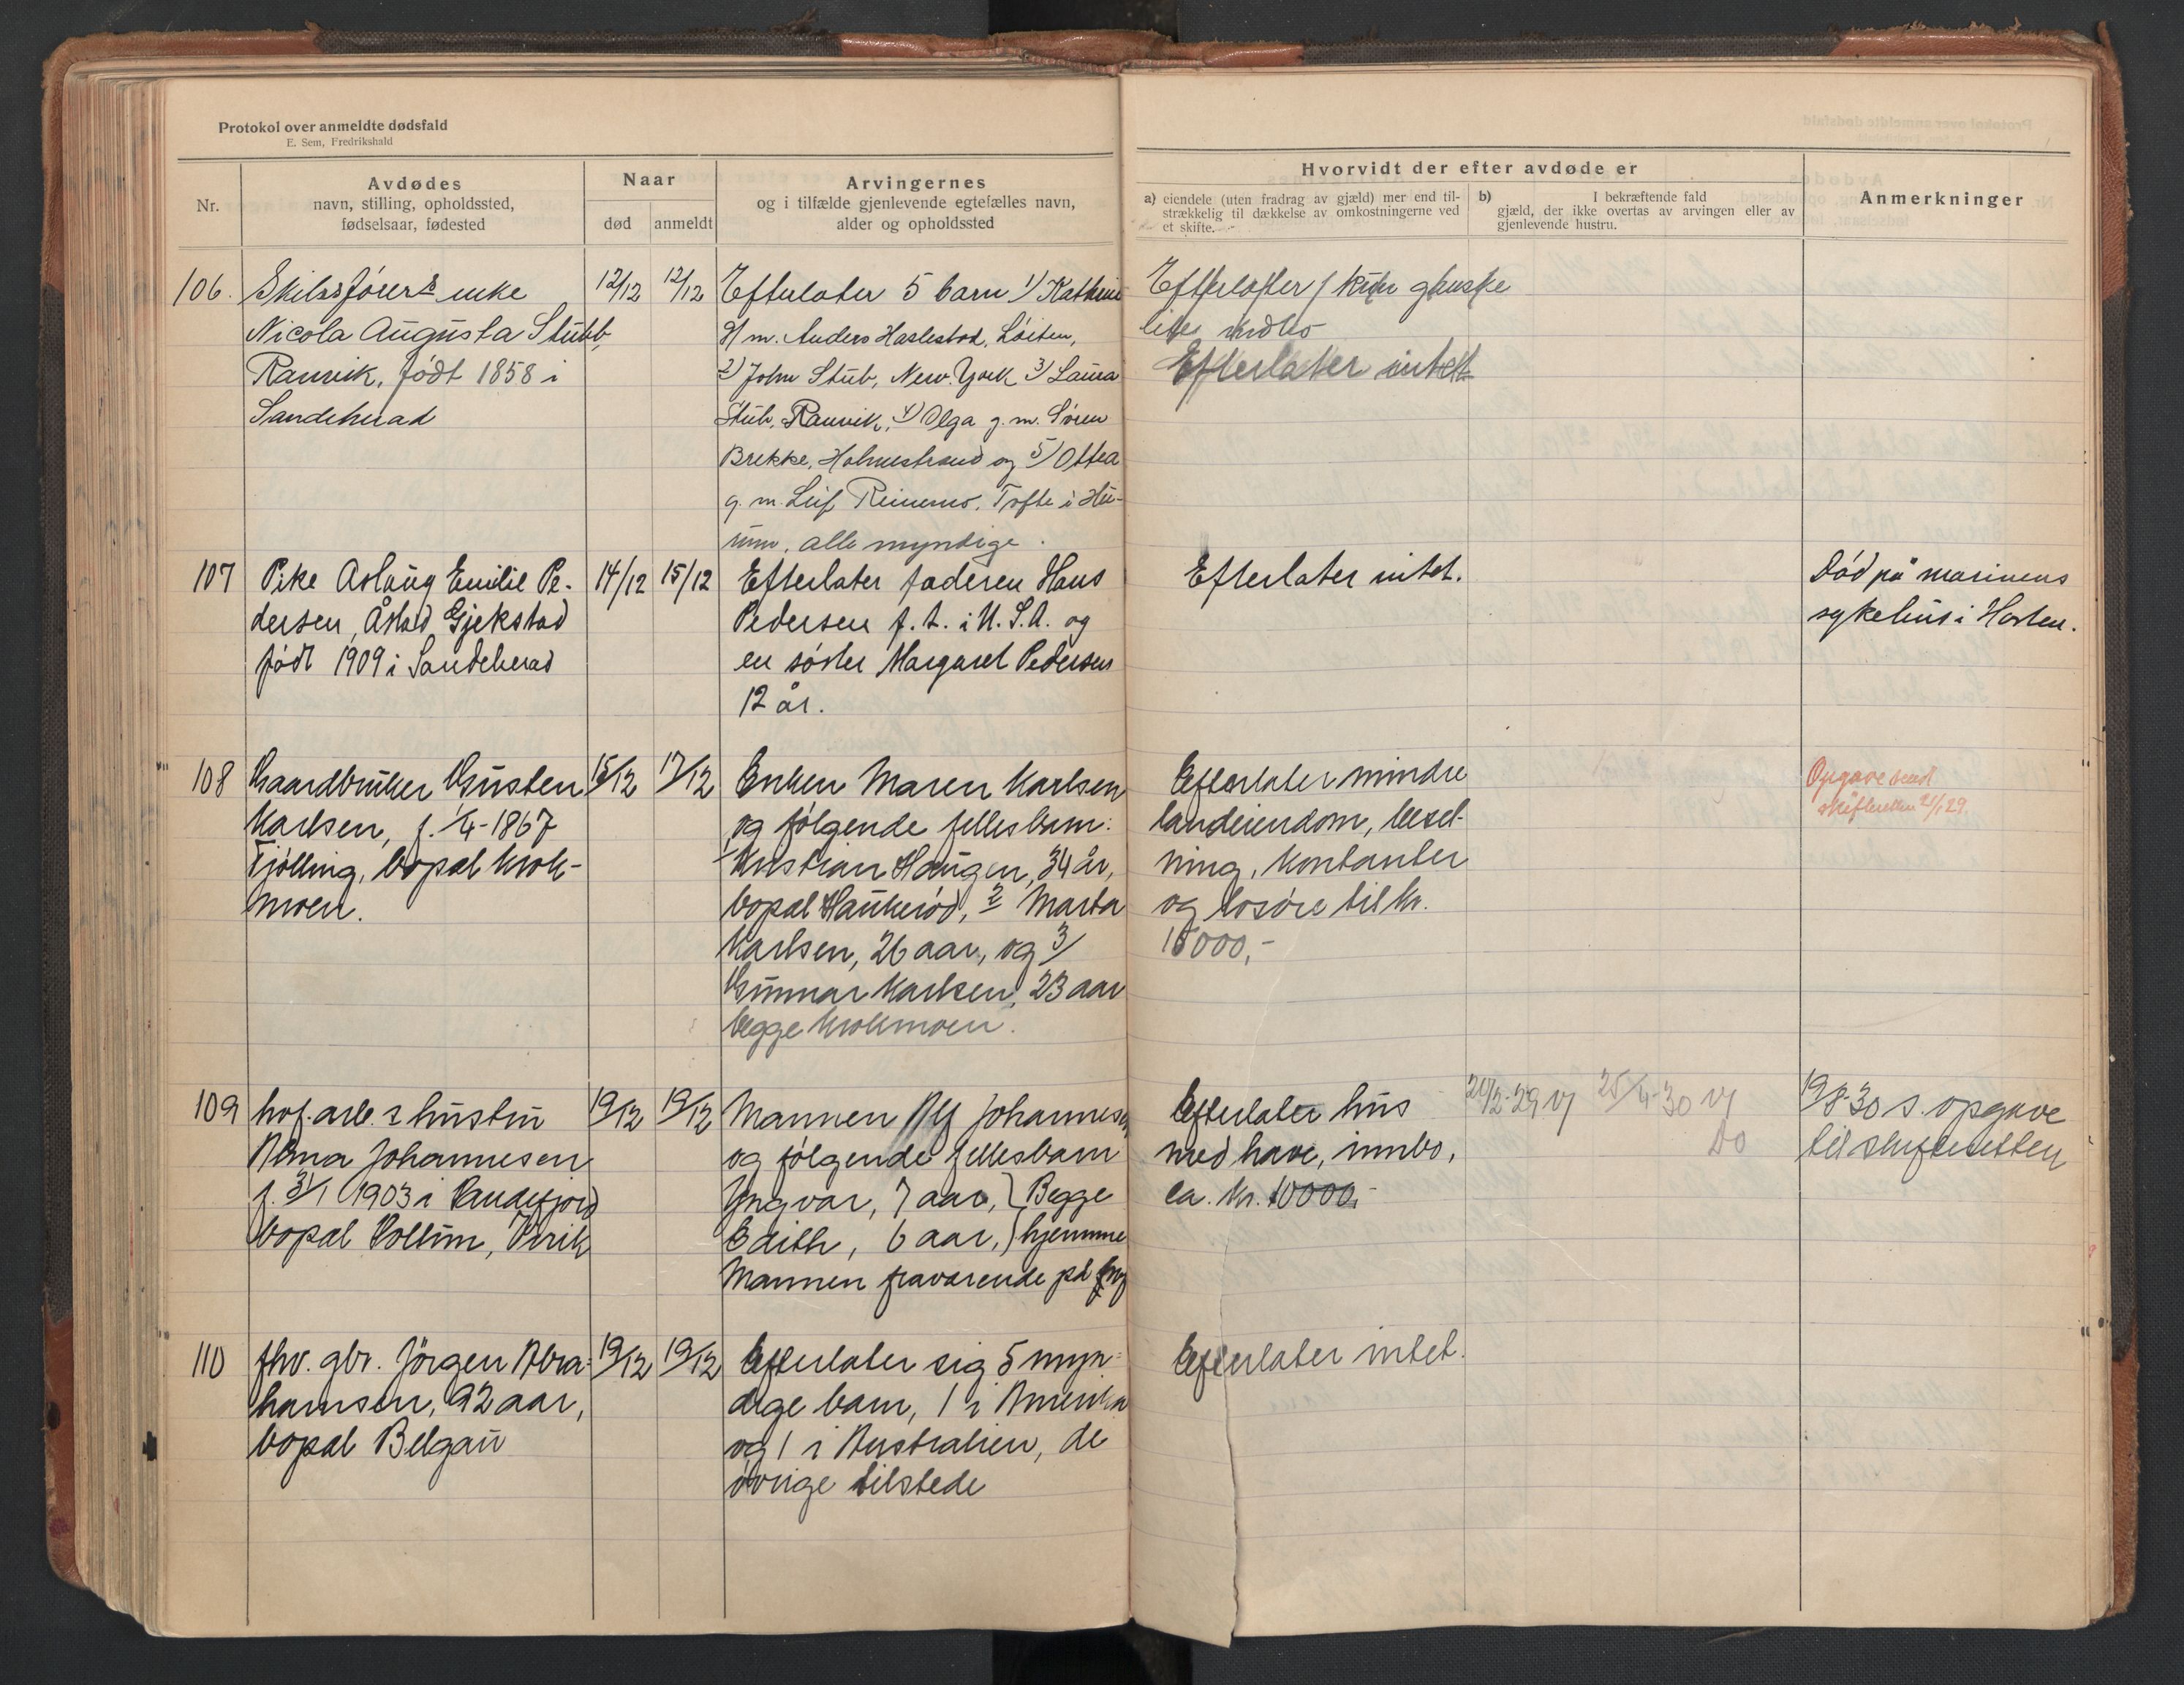 Protokol over anmeldte dødsfald
E. Sem, Fredrikshald
Nr.
Avdødes
navn, stilling, opholdssted,
fødselsaar, fødested
Naar
død
anmeldt
Arvingernes
og i tilfælde gjenlevende egtefælles navn,
alder og opholdssted
Hvorvidt der efter avdøde er
a) eiendele (uten fradrag av gjæld) mer end til-
strækkelig til dækkelse av omkostningerne ved
et skifte.
b) I bekræftende fald
gjæld, der ikke overtas av arvingen eller av
gjenlevende hustru.
Anmerkninger
106.
Skibsførers enke
Nicola Augusta Stubb,
Ranvik, født 1858 i
Sandeherad
12/12
12/12
Efterlater 5 barn 1) Kathrine
g/ m. Anders Haslestad, Løiten,
2) John Stub, New. York 3) Laura
Stub, Ranvik, 4) Olga g. m. Søren
Brekke, Holmestrand og 5) Othea
g. m. Leif Reinemo, Tofte i Hu-
rum, alle myndige.
Efterlater kun ganske
lite indbo
Efterlater intet
107
Pike Aslaug Emilie Pe-
dersen, Åstad Gjekstad
født 1909 i Sandeherad
14/12
15/12
Efterlater faderen Hans
Pedersen f. t. i U. S. A. og
en søster Margaret Pedersen
12 år.
Efterlater intet.
Død på marinens
sykehus i Horten.
108
Gaardbruker Gusten
Karlsen, f. 1/4-1867
Tjølling, bopal Krok-
moen.
15/12
17/12
Enken Maren Karlsen
og følgende fellesbarn:
Kristian Haugen, 34 år,
bopal Haukerød, 2 Marta
Karlsen, 26 aar, og 3/
Gunnar Karlsen, 23 aar
begge Krokmoen.
Efterlater mindre
landeiendom, beset-
ning, kontanter
og løsøre til kr.
15000,-
Opgave sendt
skifteretten 21/1 29.
109
hvf. arb.s hustru
Alma Johannesen
f. 31/1 1903 i Sandefjord
bopal Sollum, Virik
19/12
19/12
Mannen Alf Johannesen
og følgende fellesbarn
Yngvar, 7 aar, } Begge
Edith, 6 aar, } hjemme
Mannen fraværende på fang
Efterlater hus
med have, innbo,
ca. kr. 10000,-
20/2-29 Vj 25/4-30 Vj
Do
19/8-30 s. opgave
til skifteretten
110
fhv. gbr. Jörgen Abra-
hamsen, 92 aar,
bopal Belgau
19/12
19/12
Efterlater sig 5 myn-
dige barn, 1 i Amerika
og 1 i Australien, de
övrige tilstede
Efterlater intet.